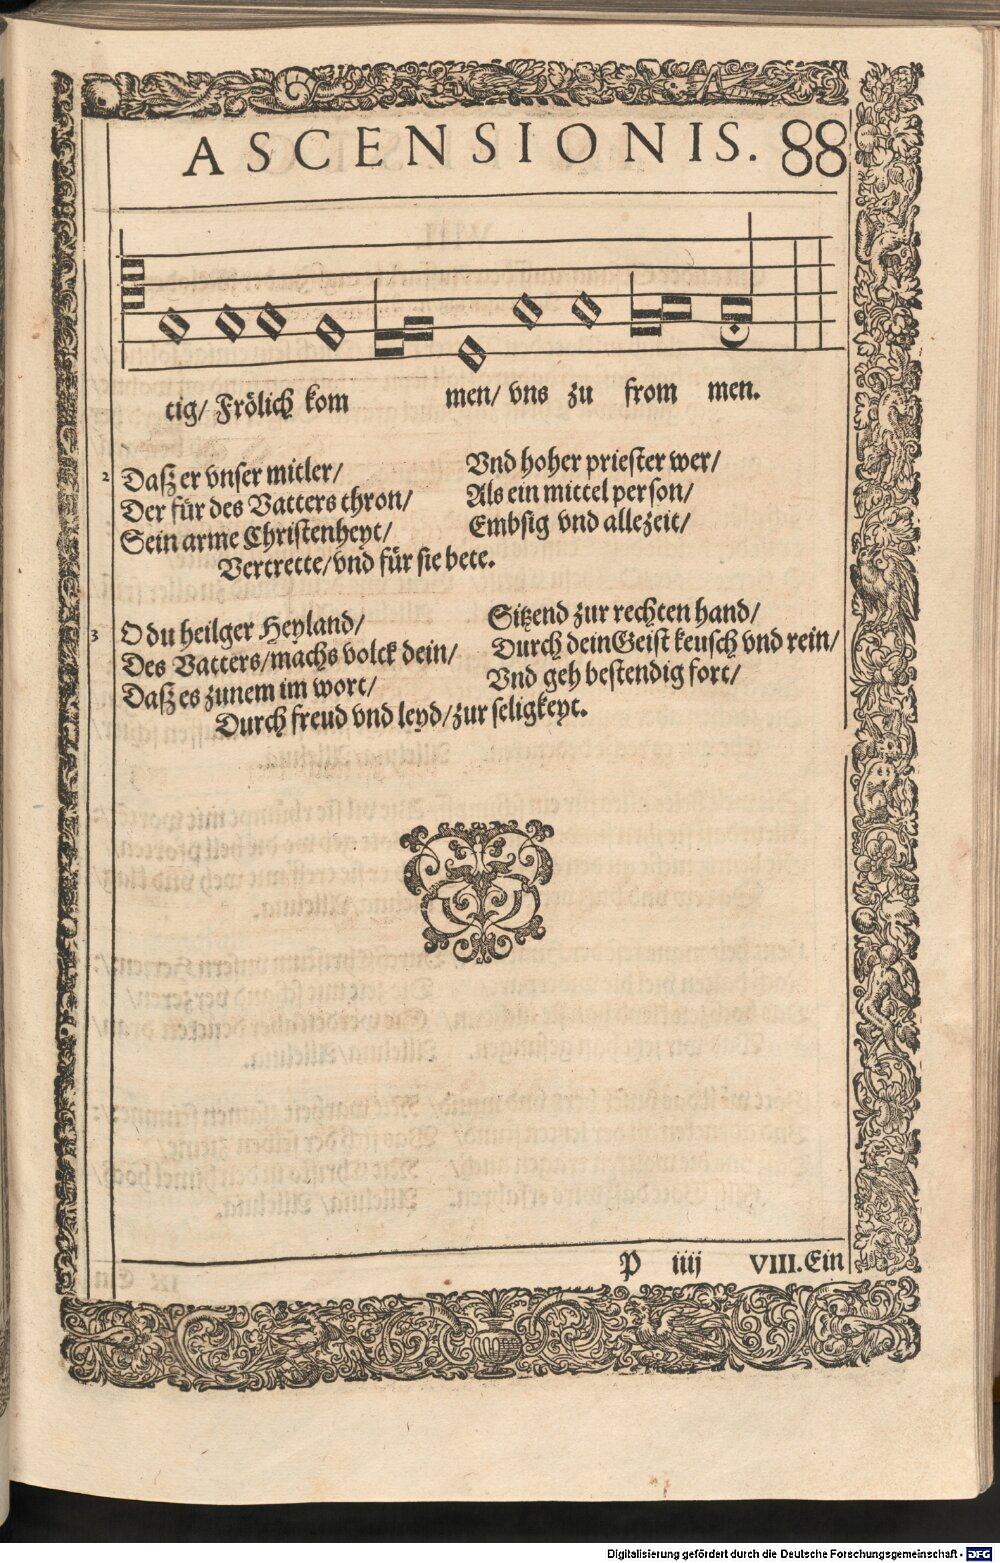 ASCENSIONIS. 88
tig/ Frölich kom men/ vns zu from men.
2 Dasz er vnser mitler/ Vnd hoher priester wer/
Der für des Vatters thron/ Als ein mittel person/
Sein arme Christenheyt/ Embsig vnd allezeit/
Vertrette/vnd für sie bete.
3 O du heilger Heyland/ Sitzend zur rechten hand/
Des Vatters/machs volck dein/ Durch dein Geist keusch vnd rein/
Dasz es zunem im wort/ Vnd geh bestendig fort/
Durch freud vnd leyd/zur seligkeyt.
P iiij VIII. Ein
Digitalisierung gefördert durch die Deutsche Forschungsgemeinschaft - DFG